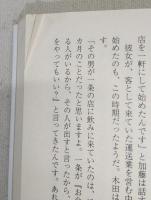 店を一軒にして始めたんです」と加藤は話
彼女が、客として来ていた運送業を営む中
始めたのも、この時期だったようだ。木田は
す。
「その男が一条の店に飲みに来ていたのは、一
カ月のことだったと思いますよ。一条が『お金
る人がいるから、その人が出すと言ったから、
をやってもいい？』と言ってきたんです。あれ